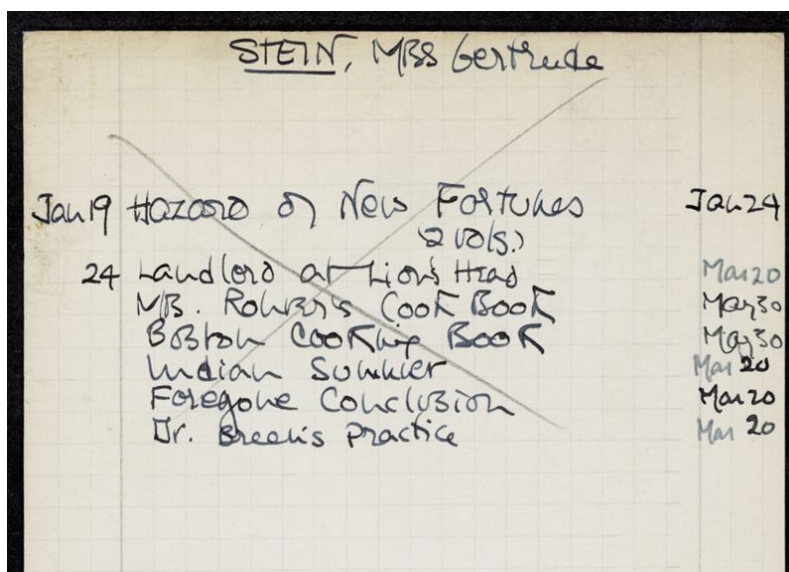 STEIN, MRS Gertrude
Jan 19 Hazard of New Fortunes Jan 24
(2 vols.)
24 Landlord at Lion's Head Mar 20
Mrs. Rohrer's Cook Book May 30
Boston Cooking Book May 30
Indian Summer Mar 20
Foregone Conclusion Mar 20
Dr. Breen's Practice Mar 20